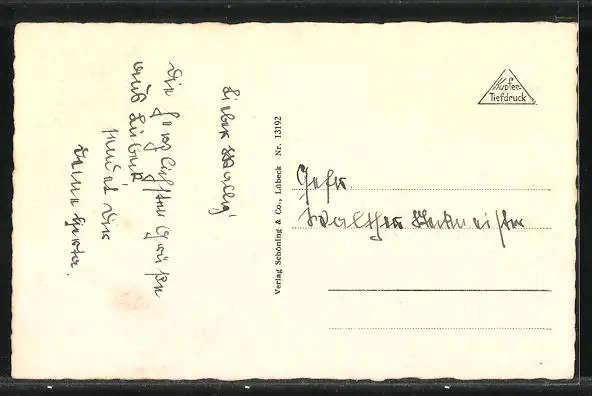 Lieber Wally!
Die herzlichsten Grüße
aus Lübeck
sendet Dir
Deine Herta.
Verlag Schöning & Co., Lübeck Nr. 13192
Kupfer-
Tiefdruck
Gefr.
Walther